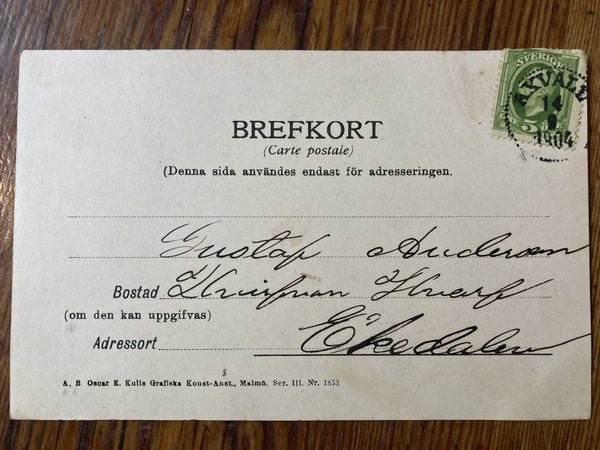 SVERIGE
AXVALL
14
1904
BREFKORT
(Carte postale)
(Denna sida användes endast för adresseringen.
Gustaf Anderson
Bostad
(om den kan uppgifvas)
Adressort Ekedalen
A. B Oscar E. Kulls Grafiska Konst-Anst., Malmö. Ser. III. Nr. 1853